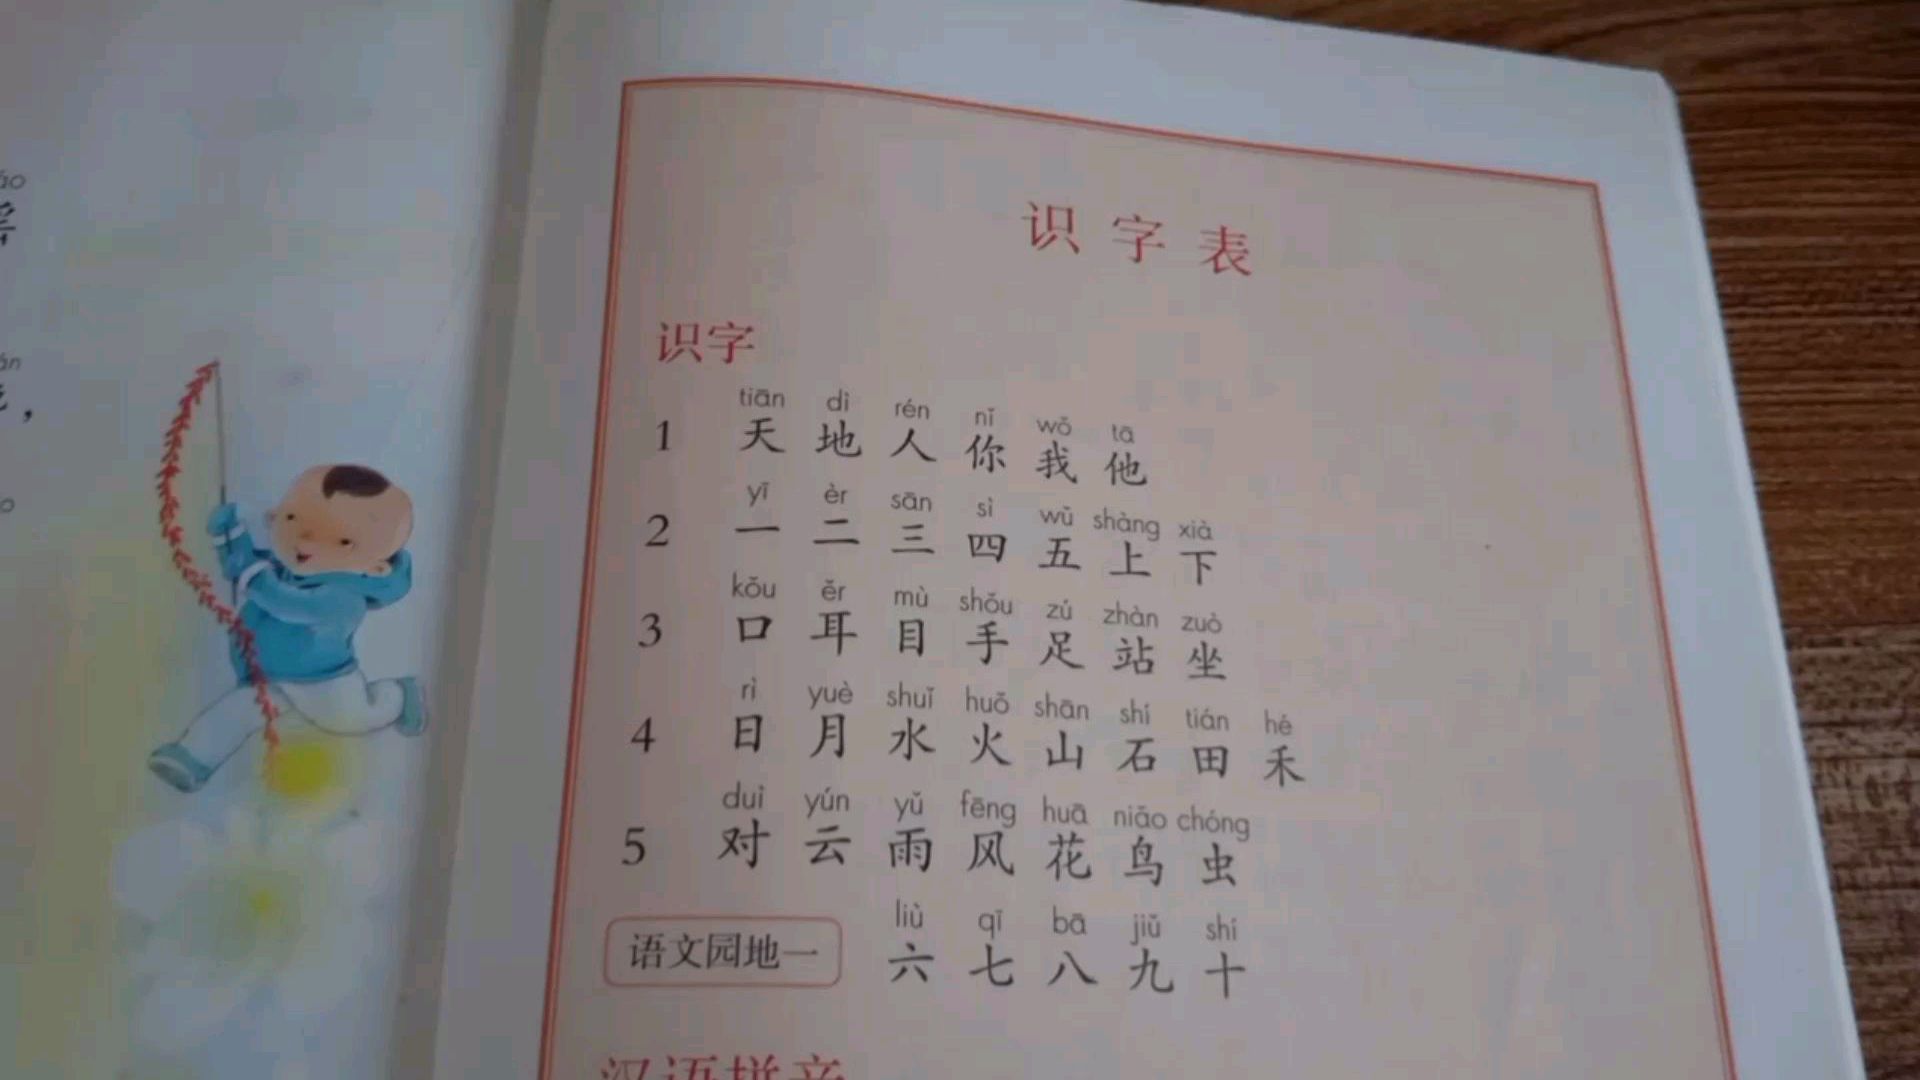 识字表
识字
tiān dì rén nǐ wǒ tā
1 天 地 人 你 我 他
yī èr sān sì wǔ shàng xià
2 一 二 三 四 五 上 下
kǒu ěr mù shǒu zú zhàn zuò
3 口 耳 目 手 足 站 坐
rì yuè shuǐ huǒ shān shí tián hé
4 日 月 水 火 山 石 田 禾
duì yún yǔ fēng huā niǎo chóng
5 对 云 雨 风 花 鸟 虫
liù qī bā jiǔ shí
语文园地一 六 七 八 九 十
汉语拼音